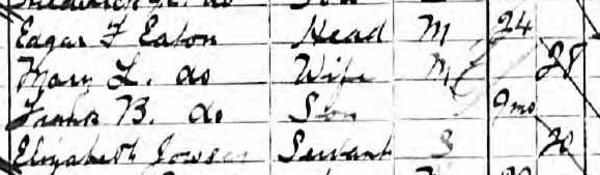 do Son
Edgar F Eaton Head M 24
Mary L. do Wife M 28
Frank B. do Son 9mo
Elizabeth Servant S 20